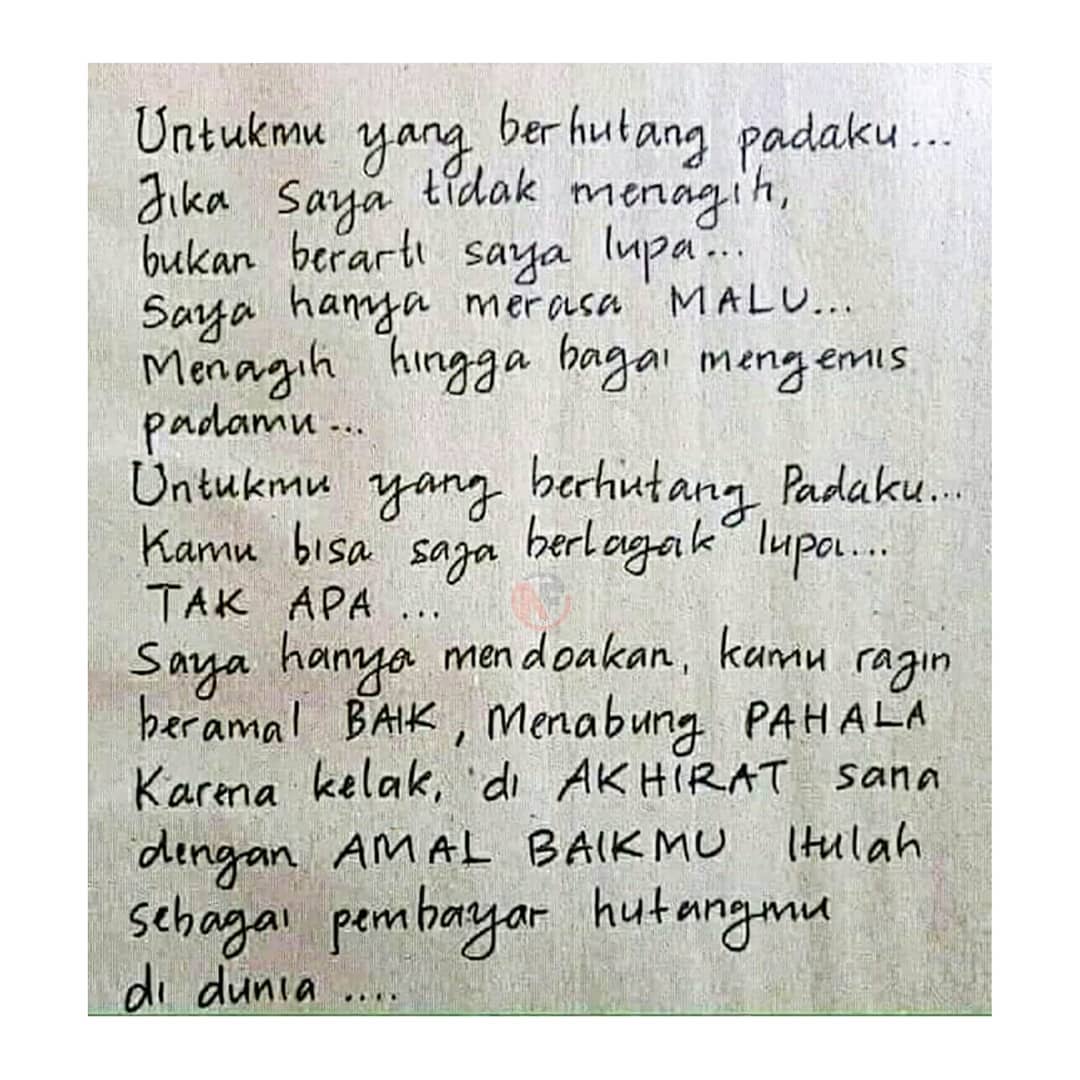 Untukmu yang berhutang padaku...
Jika saya tidak menagih,
bukan berarti saya lupa...
Saya hanya merasa MALU...
Menagih hingga bagai mengemis
padamu...
Untukmu yang berhutang Padaku...
Kamu bisa saja berlagak lupa...
TAK APA ...
Saya hanya mendoakan, kamu rajin
beramal BAIK, Menabung PAHALA
Karena kelak, di AKHIRAT sana
dengan AMAL BAIKMU Itulah
sebagai pembayar hutangmu
di dunia ....